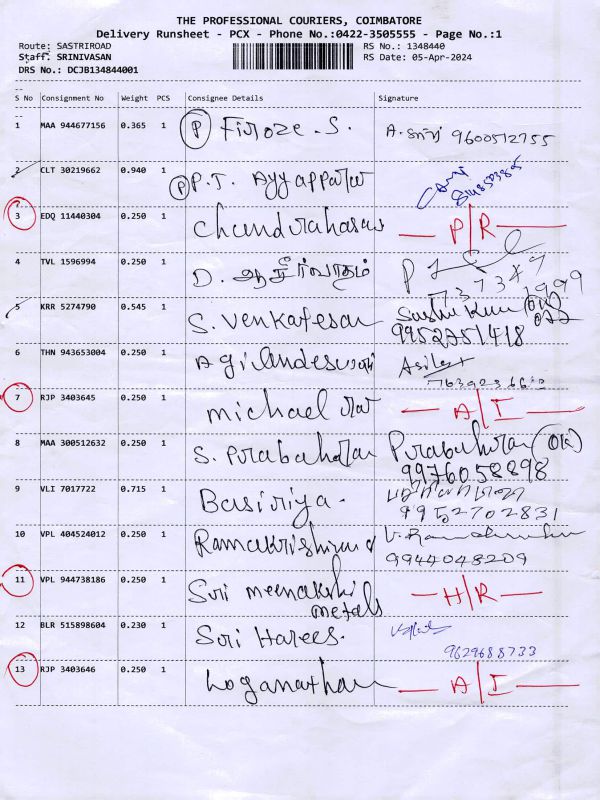 THE PROFESSIONAL COURIERS, COIMBATORE
Delivery Runsheet - PCX - Phone No.:0422-3505555 - Page No.:1
Route: SASTRIROAD RS No.: 1348440
Staff. SRINIVASAN RS Date: 05-Apr-2024
DRS No.: DCJB134844001
S No Consignment No Weight PCS Consignee Details Signature
1 MAA 944677156 0.365 1 P Firoze.S. 9600512755
2 CLT 30219662 0.940 1 P P.T. Ayyappan
3 EDQ 11440304 0.250 1 Chandrahasan P/R
4 TVL 1596994 0.250 1 D. ஆசீர்வாதம்
5 KRR 5274790 0.545 1 S. Venkatesan
9952751418
6 THN 943653004 0.250 1 Agilandeswari
7 RJP 3403645 0.250 1 michael raj A/I
8 MAA 300512632 0.250 1 S. Prabaharan Prabaharan
9976058898
9 VLI 7017722 0.715 1 Basiriya.
9952702831
10 VPL 404524012 0.250 1 Ramakrishnan
9944048209
11 VPL 944738186 0.250 1 Sri meenakshi H/R
metals
12 BLR 515898604 0.230 1 Sri Harees.
9629688733
13 RJP 3403646 0.250 1 Loganathan A/I